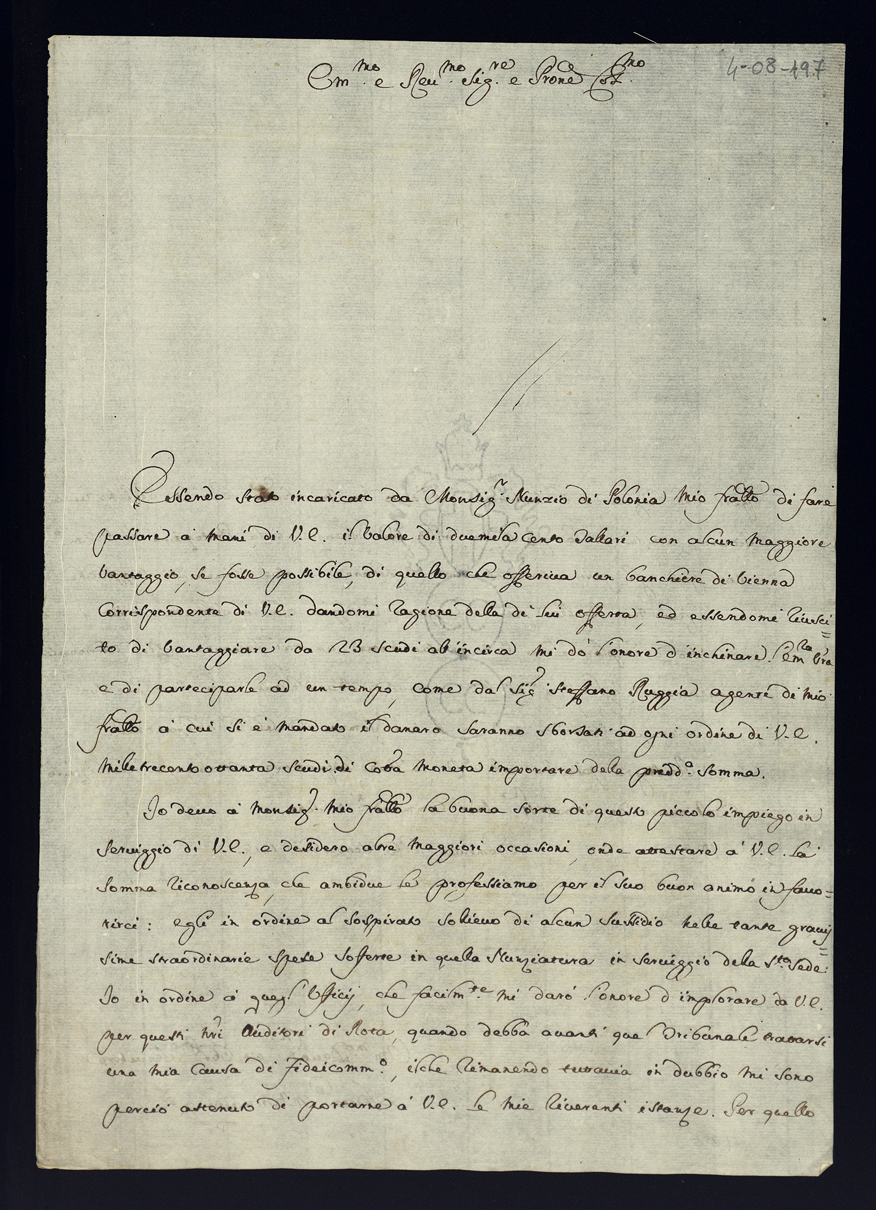 Em.mo e Reu.mo Sig.re e Prone Col.mo
4-08-197
Essendo stato incaricato da Monsig.r Nunzio di Polonia mio fratto di fare
passare à mani di V.E. il valore di duemila cento Tallari con alcun maggiore
vantaggio, se fosse possibile, di quello che offeriva un banchiere di Vienna
Corrispondente di V.E. dandomi ragione della di lui offerta, ed essendomi riusci=
to di vantaggiare da 23 scudi all'incirca mi dò l'onore d'inchinare l'Em.za Vra
e di parteciparle ad un tempo, come dal Sig.r Steffano Ruggia agente di mio
fratto à cui si è mandato il danaro saranno sborsati ad ogni ordine di V.E.
mille trecento ottanta scudi di cotta moneta importare della predd.a somma.
Io devo à Monsig.r mio fratto la buona sorte di questo piccolo impiego in
serviggio di V.E., e desidero altre maggiori occasioni, onde attestare à V.E. la
somma riconoscenza, che ambidue le professiamo per il suo buon animo in favo=
rirci: egli in ordine al sospirato sollievo di alcun sussidio nelle tante gravis=
sime straordinarie spese sofferte in quella Nunziatura in serviggio della S.ta Sede:
Io in ordine à quegl'Uffici, che facilm.te mi darò l'onore d'implorare da V.E.
per questi nri Auditori di Rota, quando debba avanti quel Tribunale trattarsi
una mia Causa di Fideicomm.o, il che rimanendo tuttavia in dubbio mi sono
perciò astenuto di portarne à V.E. le mie riverenti istanze. Per quello